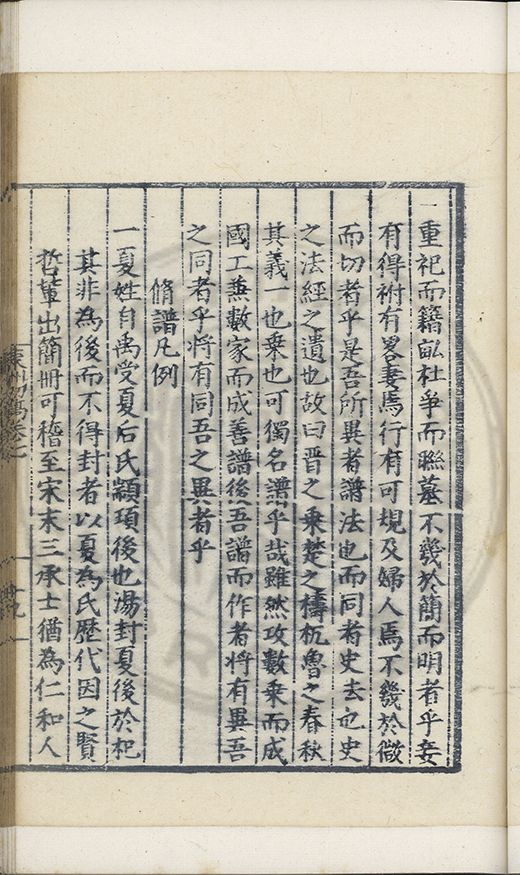 一重祀而籍畆杜爭而聮墓不幾於簡而明者乎妾
有得祔有畧妻焉行有可規及婦人焉不幾於微
而切者乎是吾所異者譜法也而同者史去也史
之法經之遺也故曰晋之乘楚之檮杌魯之春秋
其義一也乗也可獨名譜乎哉雖然攻數乗而成
國工兼數家而成善譜後吾譜而作者將有異吾
之同者乎將有同吾之異者乎
脩譜凡例
一夏姓自禹受夏后氏顓頊後也湯封夏後於杞
其非為後而不得封者以夏為氏歷代因之賢
哲軰出簡冊可稽至宋末三承士猶為仁和人